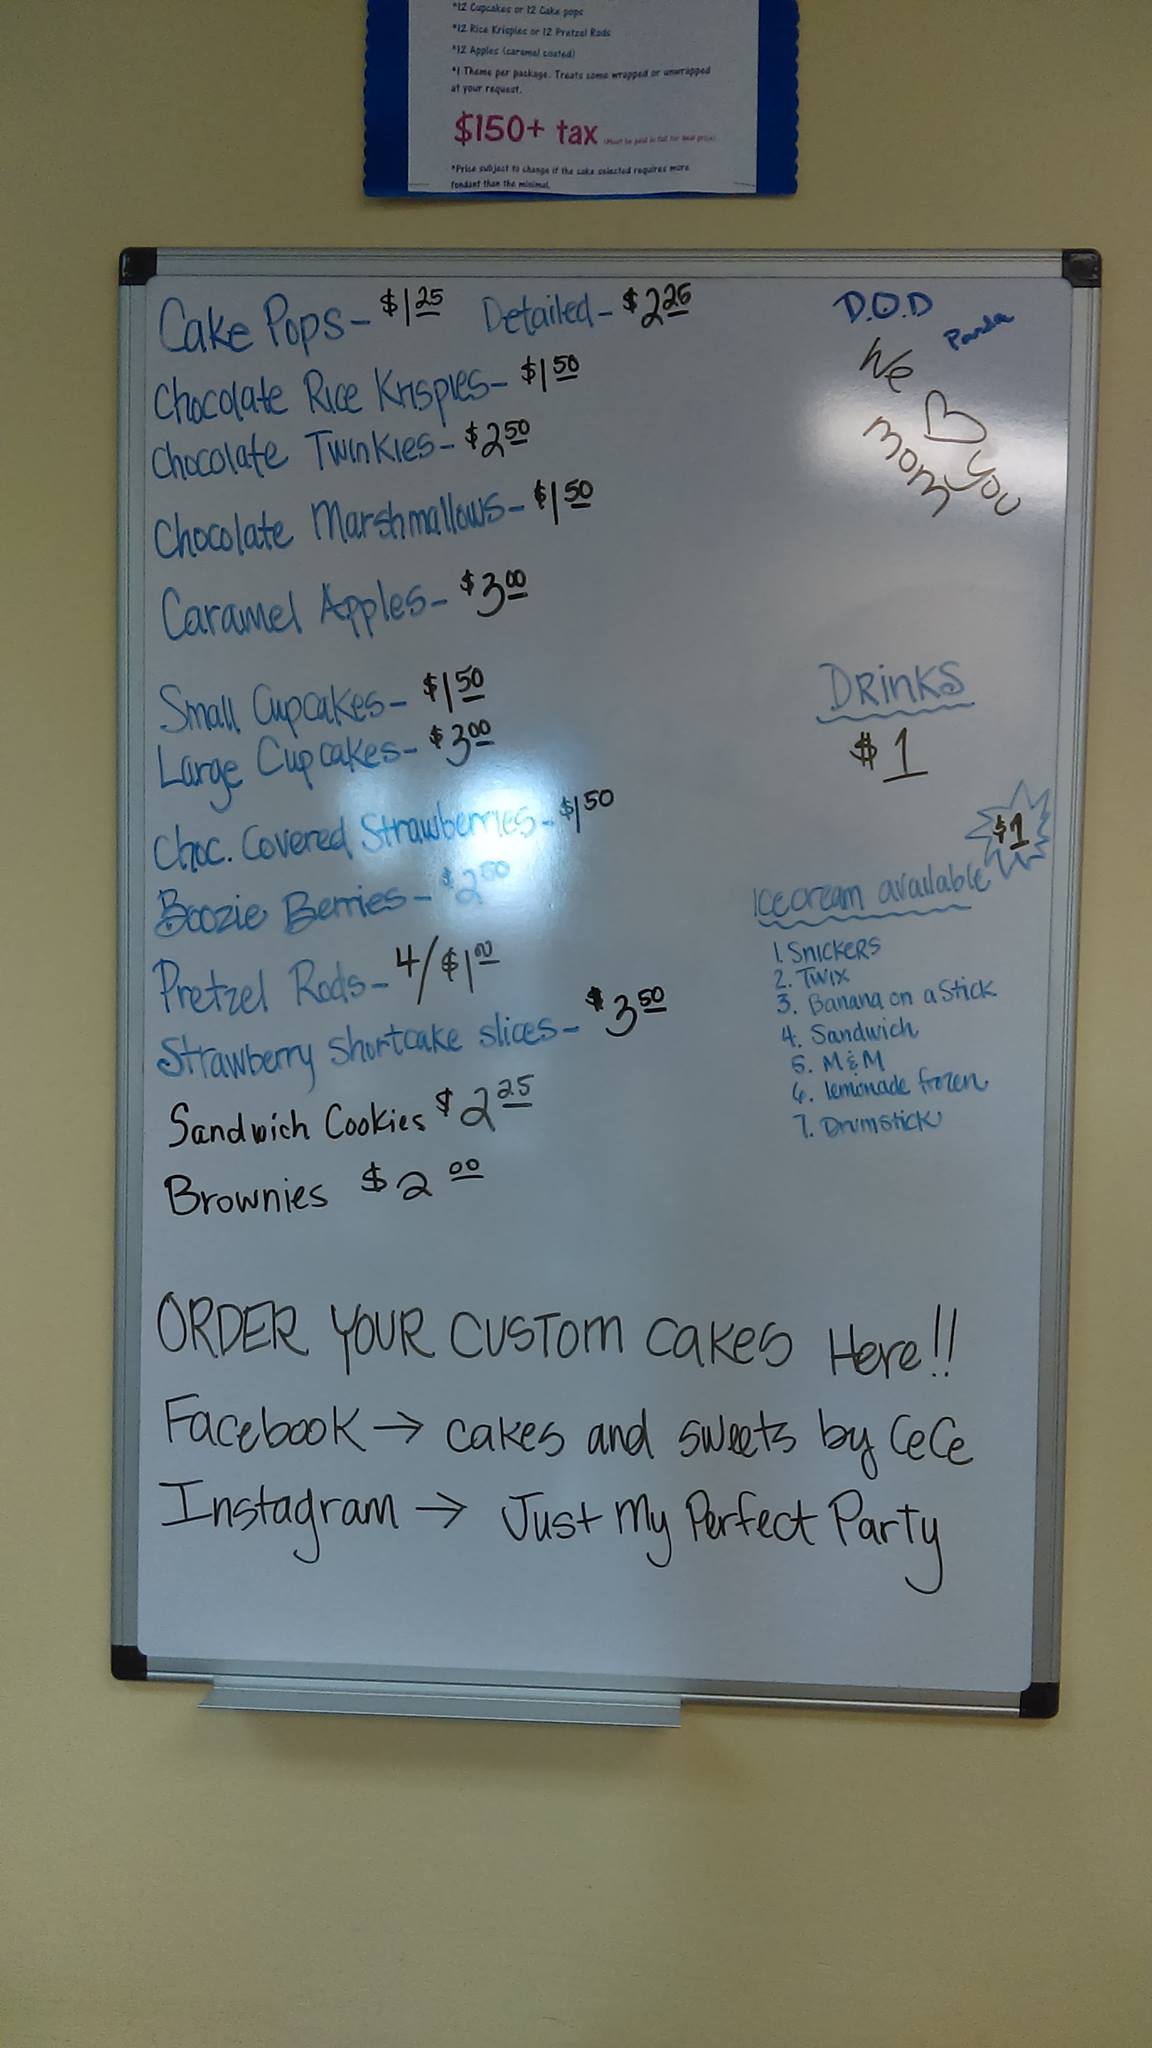 *12 Cupcakes or 12 Cake pops
*12 Rice Krispies or 12 Pretzel Rods
*12 Apples (caramel coated)
*1 Theme per package. Treats come wrapped or unwrapped
at your request.
$150+ tax (Must be paid in full for deal price)
*Price subject to change if the cake selected requires more
fondant than the minimal.
Cake Pops- $1.25 Detailed- $2.25
Chocolate Rice Krispies- $1.50
Chocolate Twinkies- $2.50
Chocolate Marshmallows- $1.50
Caramel Apples- $3.00
Small Cupcakes- $1.50
Large Cupcakes- $3.00
Choc. Covered Strawberries- $1.50
Boozie Berries- $2.50
Pretzel Rods- 4/$1.00
Strawberry Shortcake slices- $3.50
Sandwich Cookies $2.25
Brownies $2.00
D.O.D
Panda
We ♡ you
mom
DRINKS
$1
$1
Icecream available
1. Snickers
2. Twix
3. Banana on a Stick
4. Sandwich
5. M&M
6. lemonade frozen
7. Drumstick
ORDER YOUR CUSTOM CAKES Here!!
Facebook → cakes and sweets by CeCe
Instagram → Just My Perfect Party